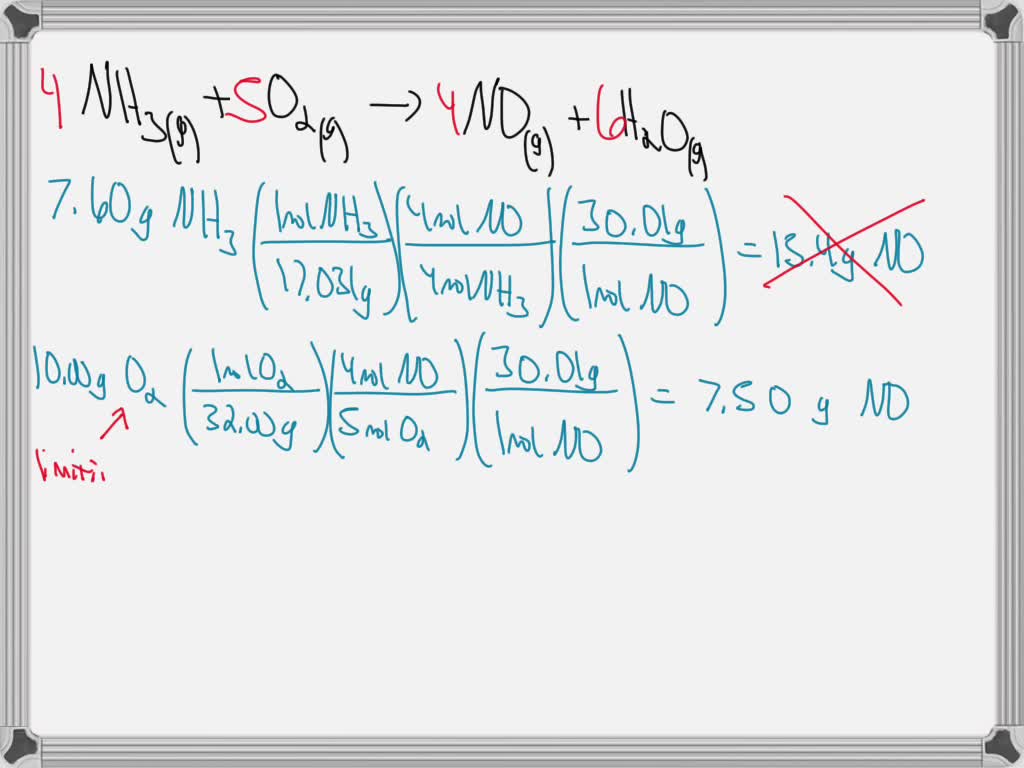 4 NH₃(g) + 5O₂(g) → 4NO(g) + 6H₂O(g)
7.60g NH₃ (1molNH₃/17.031g)(4mol NO/4molNH₃)(30.01g/1mol NO) = 13.4g NO
10.00g O₂ (1molO₂/32.00g)(4mol NO/5molO₂)(30.01g/1mol NO) = 7.50 g NO
limiti